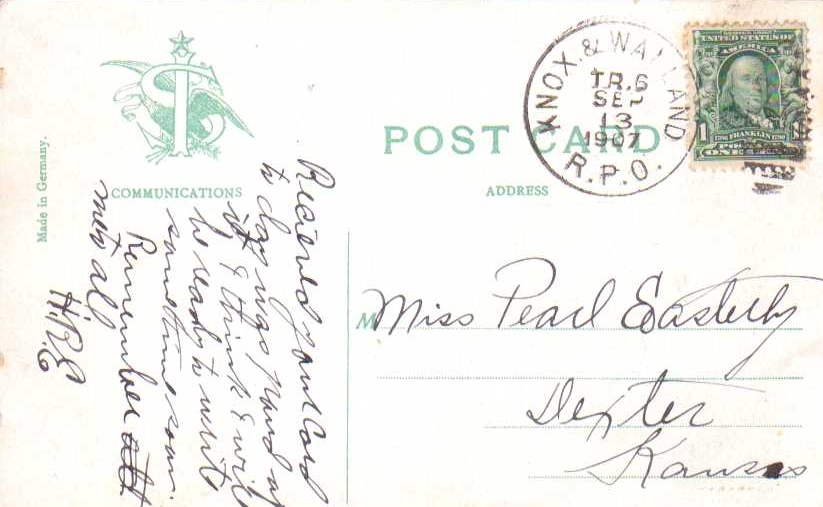 KNOX. & WALLAND
TR.6
SEP
13
1907
R.P.O.
UNITED STATES OF
AMERICA
1 FRANKLIN
POST CARD
COMMUNICATIONS
ADDRESS
Made in Germany.
Recieved your Card
to day was proud of
it I think I will
be ready to write
sometime soon.
Remember
me to all
H.B.E
Miss Pearl Easterly
Dexter
Kansas